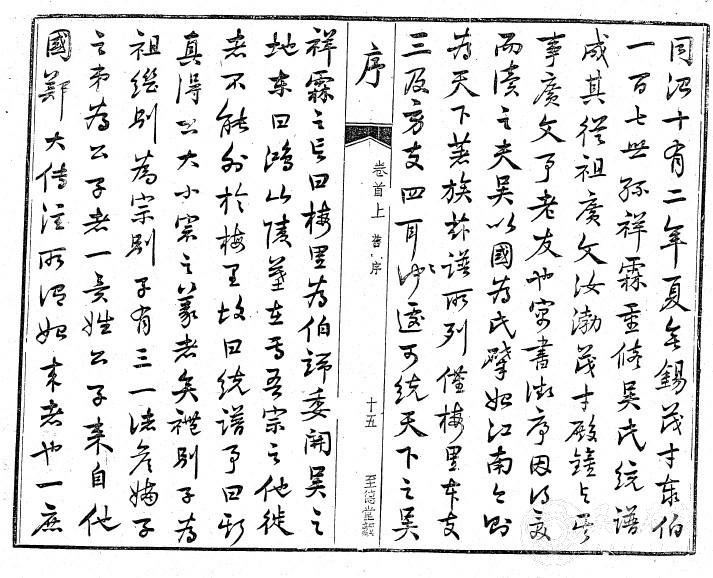 同治十有二年夏無錫茂才泰伯
一百七世孫祥霖重修吳氏統譜
成其從祖廣文汝渤茂才殿鐘與
事廣文予老友也寄書徵序因得受
而讀之夫吳以國為氏肇始江南今則
為天下著族茲譜所列僅梅里本支
三及旁支四耳
遽可統天下之吳
序
卷首上 舊序
十五
至德堂
祥霖之言曰梅里為伯
委開吳之
地東曰鴻山陵墓在焉吾宗之他徙
者不能外於梅里故曰統譜予曰
真得古大小宗之義者矣禮別子為
祖繼別為宗別子有三一諸侯嫡子
之弟為公子者一異姓公子來自他
國鄭大傳注所謂始來者也一庶